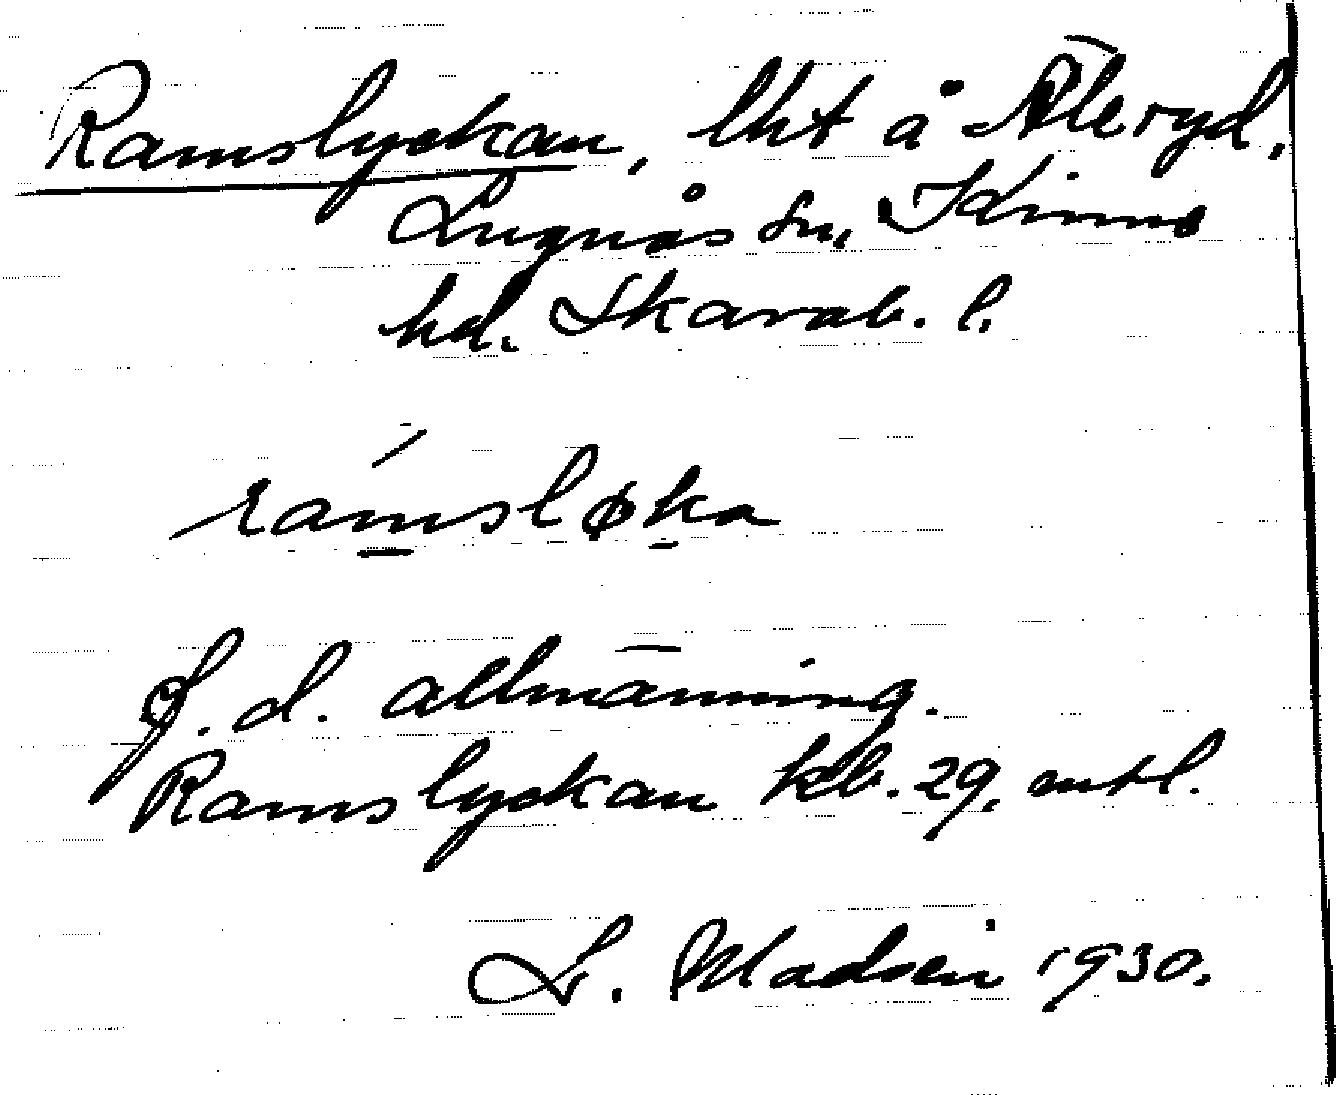 Ramslyckan, lht å Åleryd,
Lugnås sn, Kinne
hd. Skarab. l.
ramsløka
f. d. allmänning.
Ramslyckan kb. 29, mtl.
L. Madsén 1930.